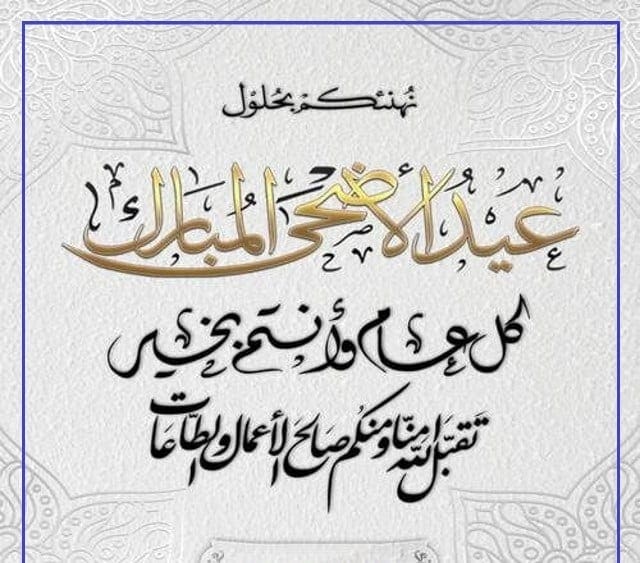 نُهنئكم بحُلوْل
عيدُ الأضحى المُبارك
كل عام وأنتم بخير
تَقبّل الله منّا ومنكم صَالحَ الأعمال والطّاعَات